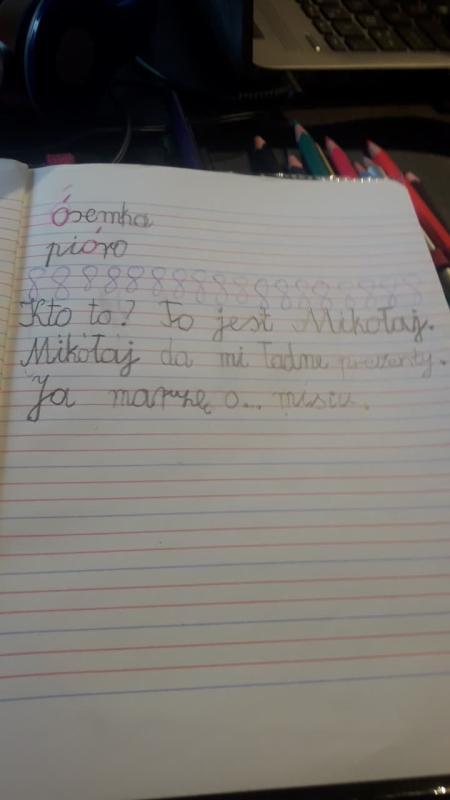 Ósemka
pióro
8888888888888888888
Kto to? To jest Mikołaj.
Mikołaj da mi ładne prezenty.
Ja marzę o... misiu.